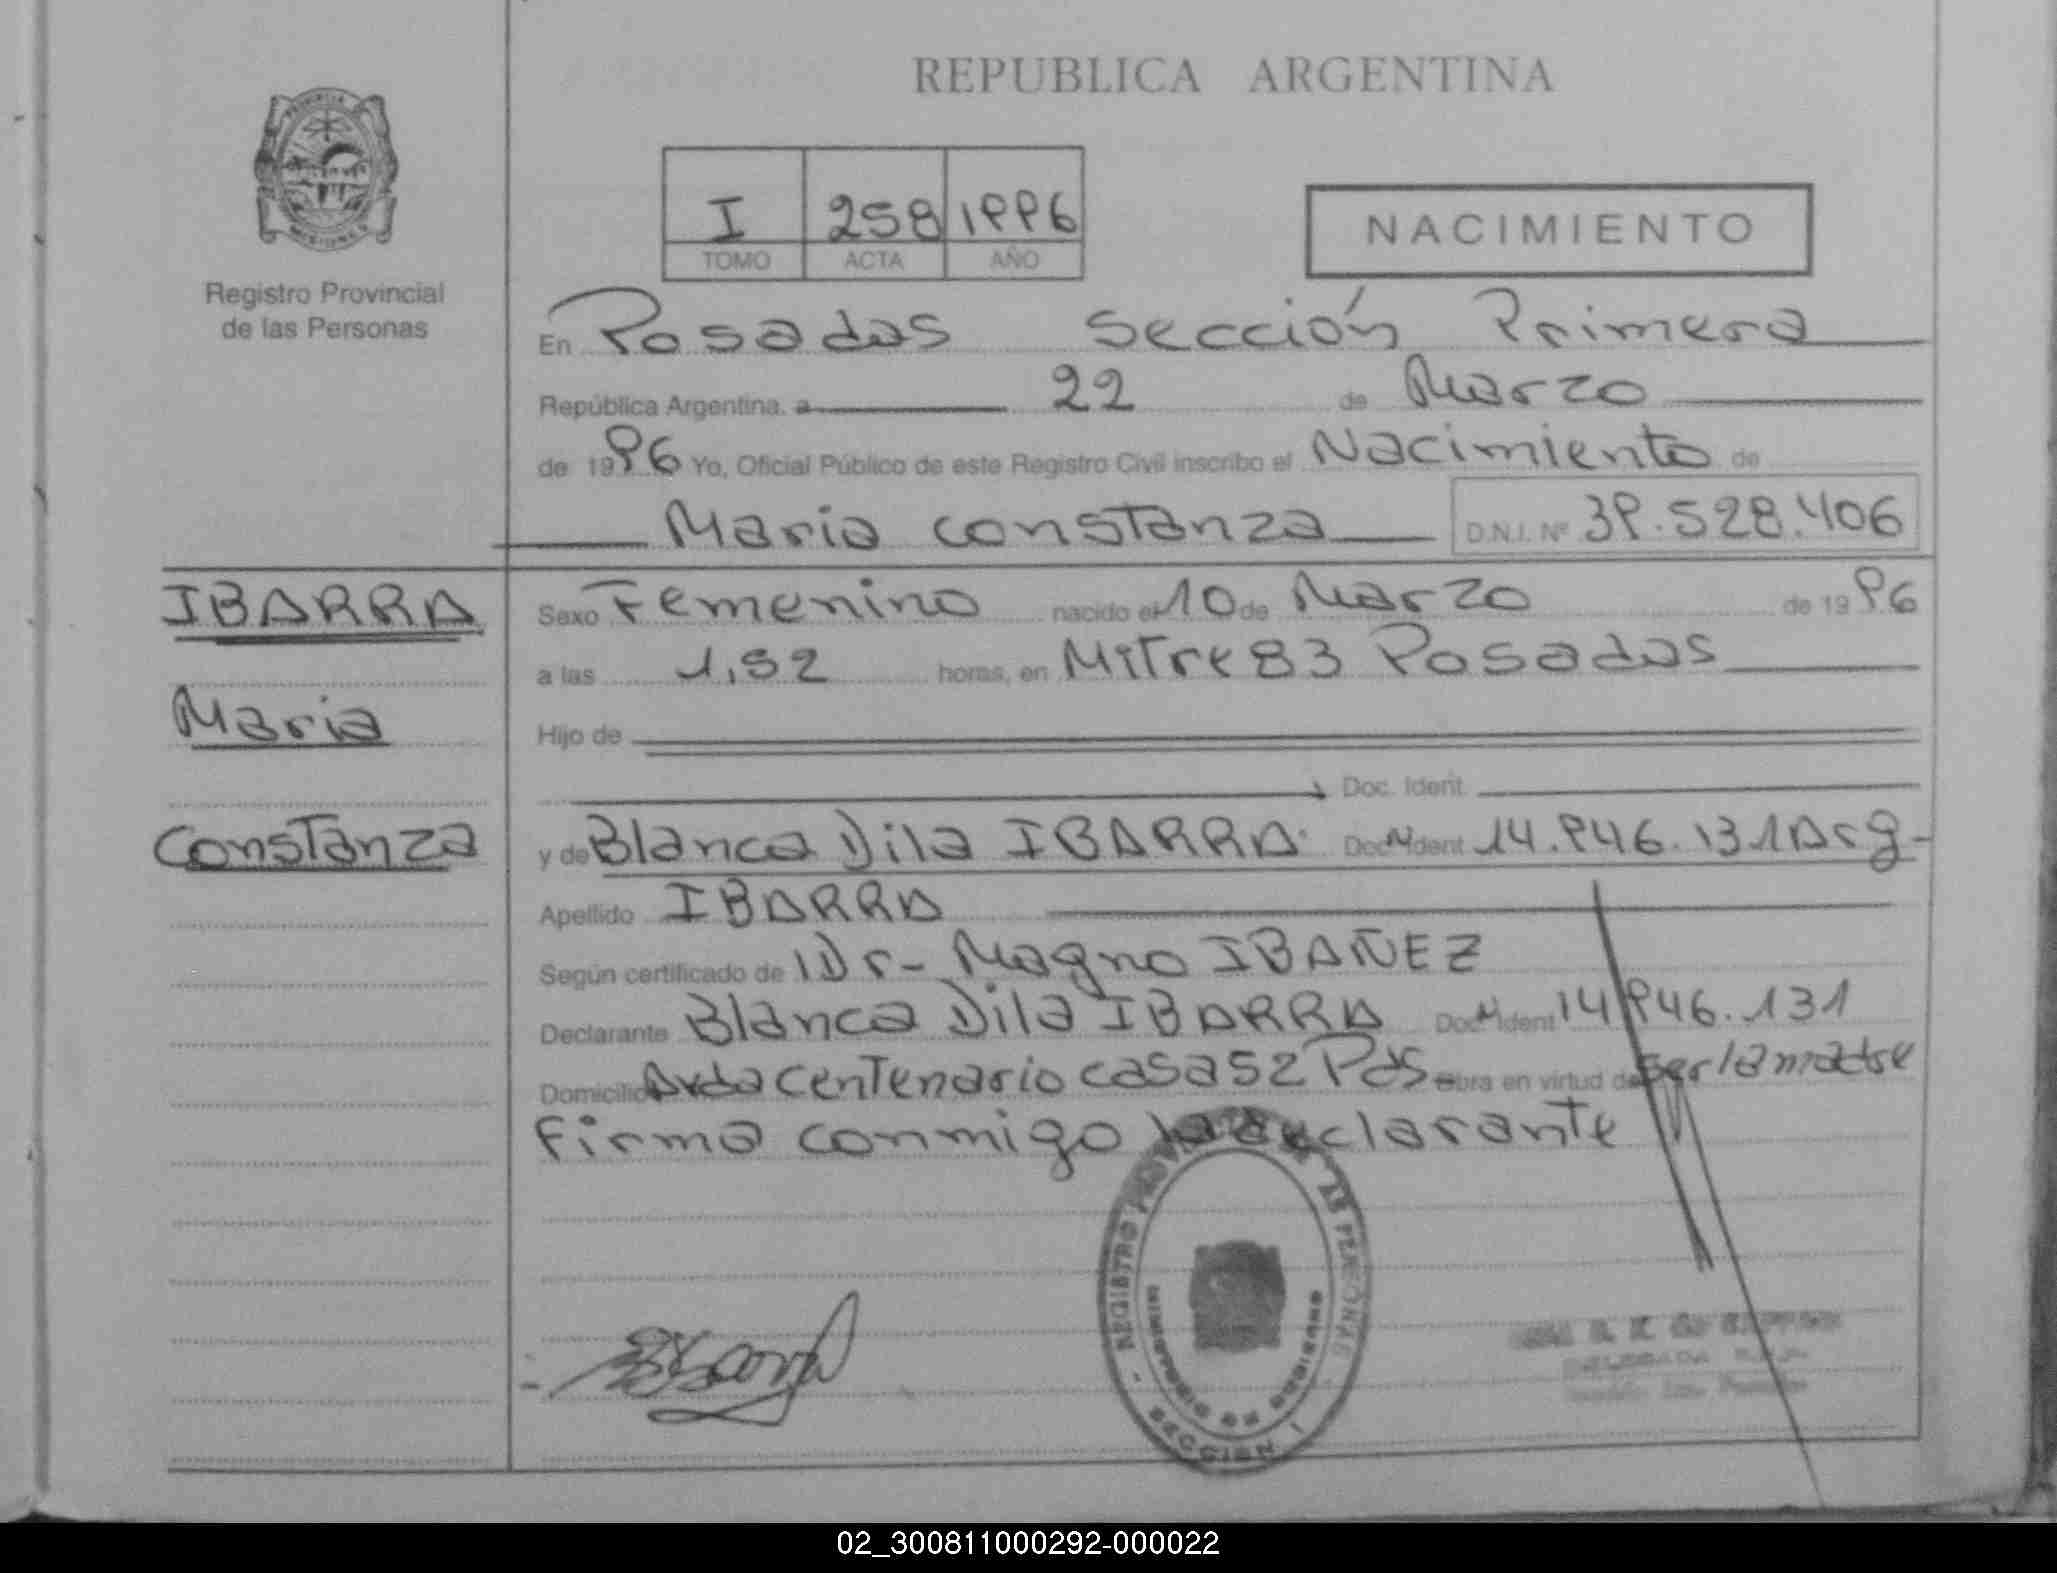 REPUBLICA ARGENTINA
PROVINCIA
MISIONES
Registro Provincial
de las Personas
I 258 1996
TOMO ACTA AÑO
NACIMIENTO
En Posadas Sección Primera
República Argentina, a 22 de Marzo
de 1996 Yo, Oficial Público de este Registro Civil inscribo el Nacimiento de
Maria Constanza D.N.I. Nº 39.528.406
IBARRA
Maria
Constanza
Sexo Femenino nacido el 10 de Marzo de 1996
a las 1,52 horas, en Mitre 83 Posadas
Hijo de
Doc. Ident.
y de Blanca Dila IBARRA Doc. Ident 14.946.131 Arg-
Apellido IBARRA
Según certificado de Dr- Magno IBAÑEZ
Declarante Blanca Dila IBARRA Doc. Ident 14.946.131
Domicilio Avda Centenario casa 52 Pdas Obra en virtud de ser la madre
Firma conmigo la declarante
REGISTRO PROVINCIAL DE LAS PERSONAS
MINISTERIO DE GOBIERNO
SECCION I
02_300811000292-000022